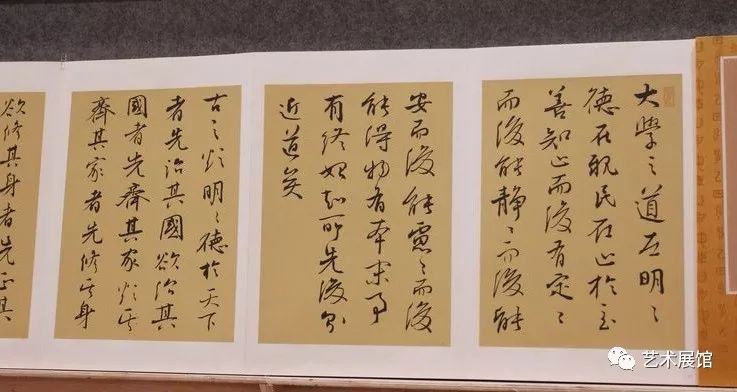 大學之道在明々
德在親民在止於至
善知止而後有定々
而後能靜々而後能
安而後能慮々而後
能得物有本末事
有終始知所先後則
近道矣
古之欲明々德於天下
者先治其國欲治其
國者先齊其家欲
齊其家者先修其身
欲修其身者先正其
艺术展馆